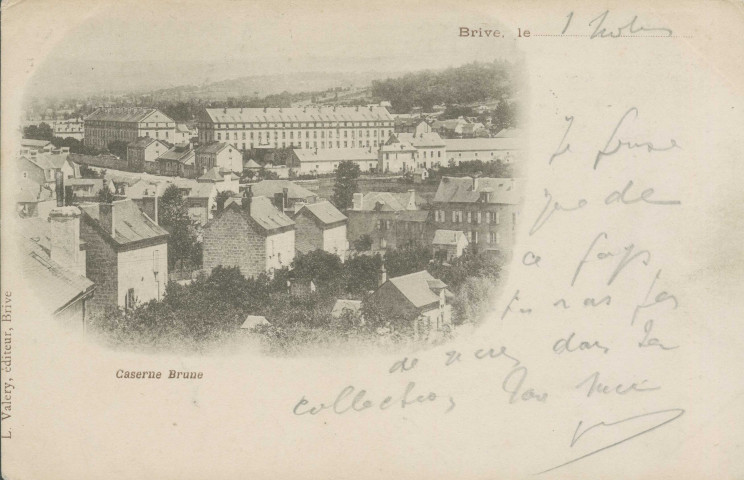 Brive, le 1
Je pense
que de
ce pays
tu n'as pas
de vues dans ta
collection
Caserne Brune
L. Valery, éditeur, Brive